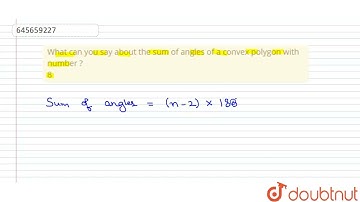 645659227
What can you say about the sum of angles of a convex polygon with
number ?
8
Sum of angles = (n-2) × 180
doubtnut